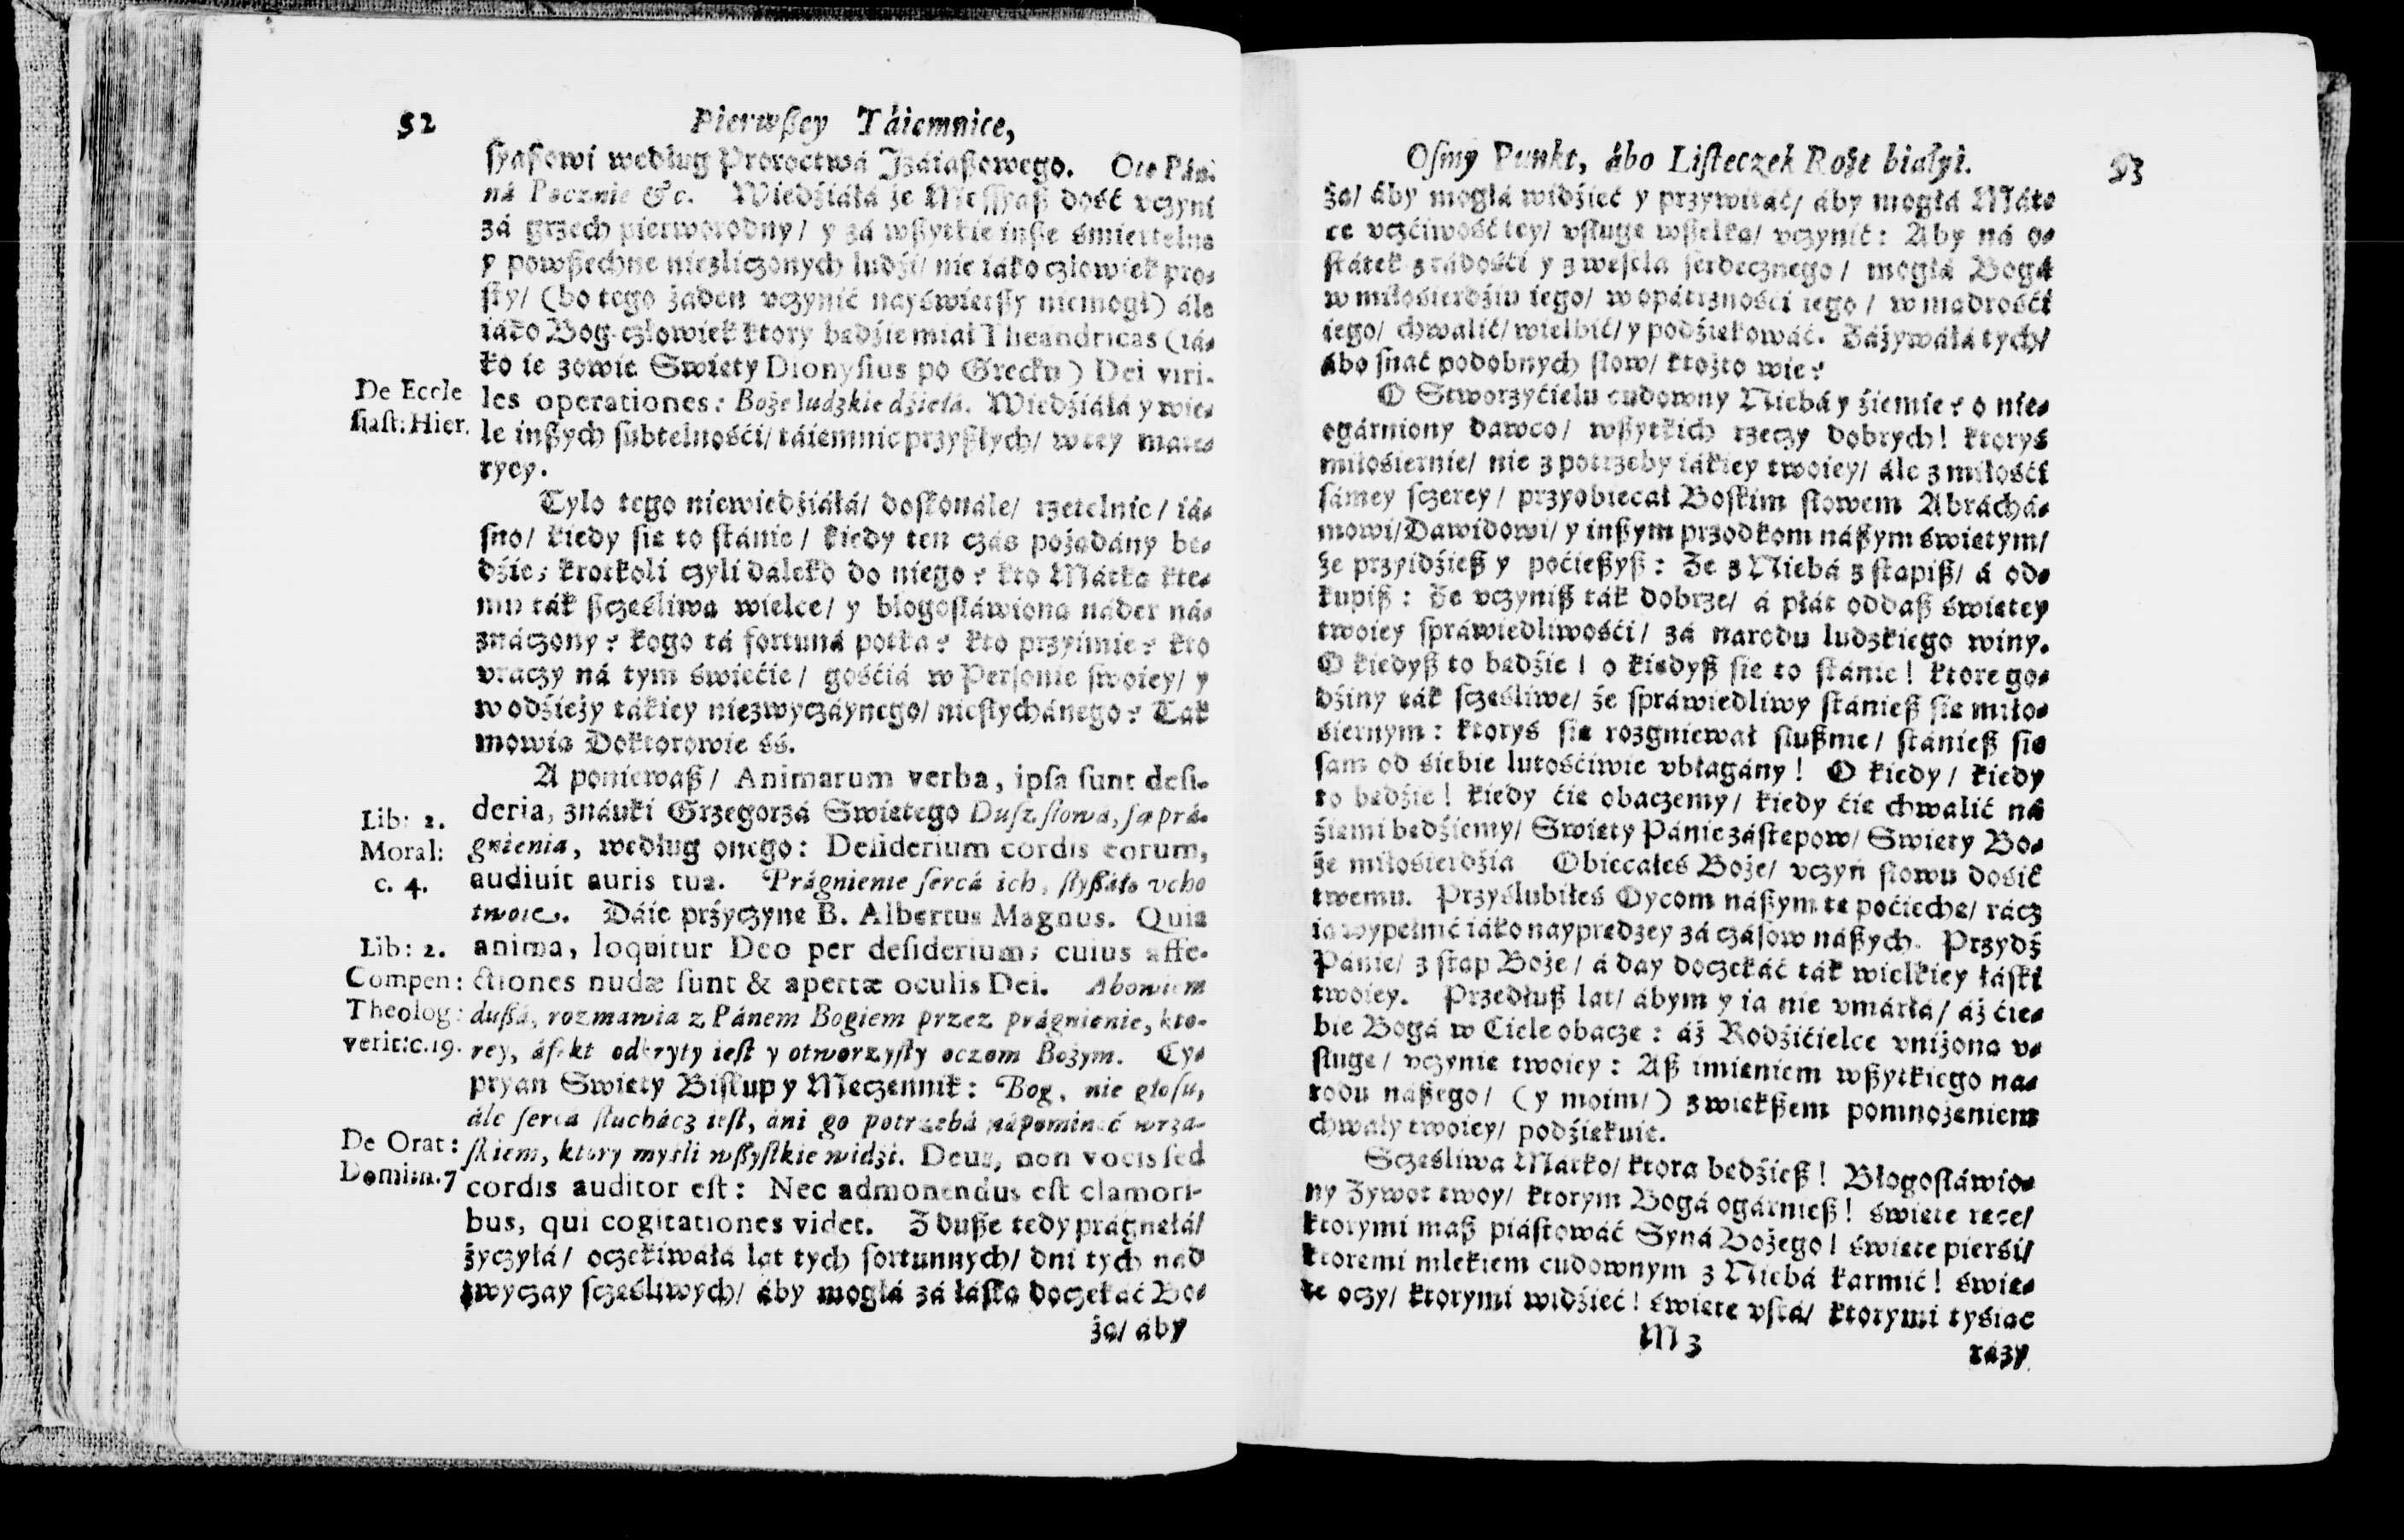 52
Pierwßey Táiemnice,
ſyaßowi według Proroctwá Jzáiaßowego. Oto Pán-
ná Pocznie &c. Wiedźiáłá że Meſſyaß dość vczyni
zá grzech pierworodny/ y zá wßytkie inße śmiertelne
y powßechne niezliczonych ludźi/ nie iáko człowiek pro-
ſty/ (bo tego żaden vczynić nayświetßy niemogł) ále
iáko Bog-człowiek ktory będźie miał Theandricas (iá-
ko ie zowie Swięty Dionyſius po Grecku) Dei viri-
De Eccle
les operationes: Boże ludzkie dźiełá. Wiedźiáłá y wie-
ſiaſt: Hier.
le inßych ſubtelnośći/ táiemnic przyßłych/ w tey mate-
ryey.
Tylo tego niewiedźiáłá/ doſkonále/ rzetelnie/ iá-
ſno/ kiedy ſię to ſtánie/ kiedy ten czás pożądány bę-
dźie; krotkoli czyli dáleko do niego? kto Mátką kte-
mu ták ßczęśliwą wielce/ y błogoſłáwioną náder ná-
znáczony? kogo tá fortuná potka? kto przyimie? kto
vraczy ná tym świećie/ gośćiá w Perſonie ſwoiey/ y
w odźieży tákiey niezwyczáynego/ nieſłychánego? Tak
mowią Doktorowie śś.
A poniewaß/ Animarum verba, ipſa ſunt deſi-
Lib: 2.
deria, znáuki Grzegorzá Swiętego Duſz ſłowá, ſą prá-
Moral:
gnienia, według onego: Deſiderium cordis eorum,
c. 4.
audiuit auris tua. Prágnienie ſercá ich, ſłyßáło vcho
twoie. Dáie przyczynę B. Albertus Magnus. Quia
Lib: 2.
anima, loquitur Deo per deſiderium; cuius affe-
Compen:
ctiones nudæ ſunt & apertæ oculis Dei. Abowiem
Theolog:
dußá, rozmawia z Pánem Bogiem przez prágnienie, kto-
verit: c. 19.
rey, áfekt odkryty ieſt y otworzyſty oczom Bożym. Cy-
pryan Swięty Biſkup y Męczennik: Bog, nie głoſu,
ále ſercá ſłuchácz ieſt, áni go potrzebá nápominać wrza-
De Orat:
ſkiem, ktory myśli wßyſtkie widzi. Deus, non vocis ſed
Domim. 7
cordis auditor eſt: Nec admonendus eſt clamori-
bus, qui cogitationes videt. Z duße tedy prágnęłá/
życzyłá/ oczekiwałá lat tych fortunnych/ dni tych nád
zwyczay ſczęśliwych/ áby mogłá zá łáſką doczekáć Bo-
żą/ áby

Oſmy Punkt, ábo Liſteczek Rożę białyi.
53
żą/ áby mogłá widźieć y przywitáć/ áby mogłá Mát-
ce vczćiwość tey/ vſługę wßelką/ vczynić: Aby ná o-
ſtátek z rádośći y z weſela ſerdecznego/ mogłá Bogá
w miłośierdźiu iego/ w opátrznośći iego/ w mądrośći
iego/ chwalić/ wielbić/ y podźiękowáć. Záżywáłá tych/
ábo ſnać podobnych ſłow/ ktożto wie?
O Stworzyćielu cudowny Niebá y źiemie? o nie-
ogárniony dawco/ wßytkich rzeczy dobrych! ktoryś
miłośiernie/ nie z potrzeby iákiey twoiey/ ále z miłośći
ſámey ſczerey/ przyobiecał Boſkim ſłowem Abráchá-
mowi/ Dawidowi/ y inßym przodkom náßym świętym/
że przyidźieß y poćießyß: Że z Niebá zſtąpiß/ á od-
kupiß: Że vczyniß ták dobrze/ á płát oddaß świętey
twoiey ſpráwiedliwośći/ zá narodu ludzkiego winy.
O kiedyß to będźie! o kiedyß ſię to ſtánie! ktore go-
dźiny ták ſczęśliwe/ że ſpráwiedliwy ſtánieß ſię miło-
śiernym: ktoryś ſię rozgniewał ſłußnie/ ſtánieß ſię
ſam od śiebie lutośćiwie vbłagány! O kiedy/ kiedy
to będźie! kiedy ćię obaczemy/ kiedy ćię chwalić ná
źiemi będźiemy/ Swięty Pánie záſtępow/ Swięty Bo-
że miłośierdźia Obiecałeś Boże/ vczyń ſłowu dośić
twemu. Przyślubiłeś Oycom náßym tę poćiechę/ rácz
ią wypełnić iáko nayprędzey zá czáſow náßych. Przydź
Pánie/ zſtąp Boże/ á day doczekáć ták wielkiey łáſki
twoiey. Przedłuß lat/ ábym y ia nie vmárłá/ áż ćie-
bie Bogá w Ciele obaczę: áż Rodźićielce vniżoną v-
ſługę/ vczynię twoiey: Aß imieniem wßytkiego na-
rodu náßego/ (y moim/) z więkßem pomnożeniem
chwały twoiey/ podźiękuię.
Sczęśliwa Mátko/ ktora będźieß! Błogoſłáwio-
ny Żywot twoy/ ktorym Bogá ogárnieß! święte ręce/
ktorymi maß piáſtowáć Syná Bożego! święte pierśi/
ktoremi mlekiem cudownym z Niebá karmić! świę-
te oczy/ ktorymi widźieć! święte vſtá/ ktorymi tyśiąc
M 3
rázy